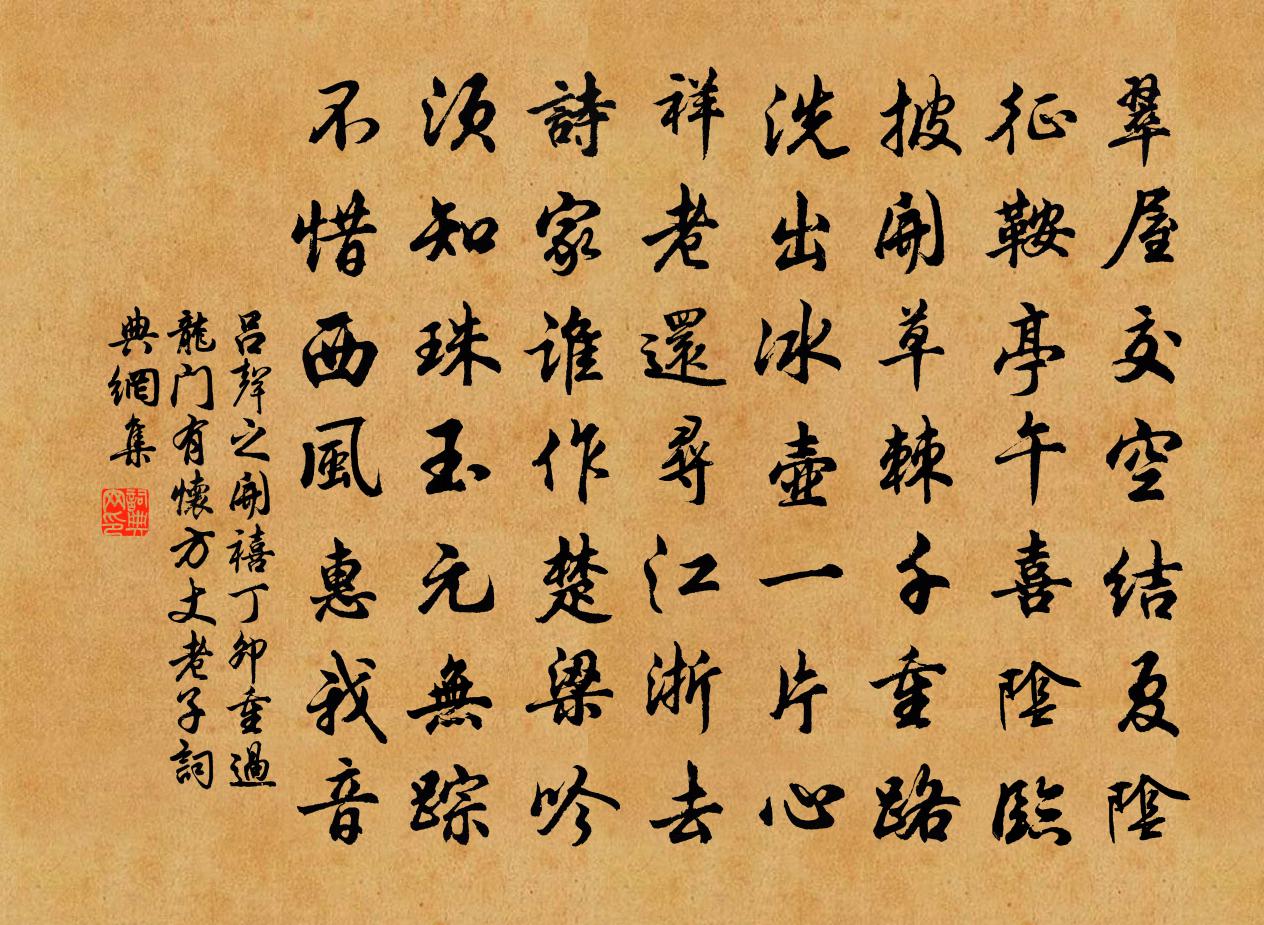 翠屋交空結夏陰
征鞍亭午喜陰臨
披開草棘千重路
洗出冰壺一片心
祥老還尋江浙去
詩家誰作楚梁吟
須知珠玉元無踪
不惜西風惠我音
呂聲之開禧丁卯重過
龍门有懷方丈老子詞
典網集
詞典
网印